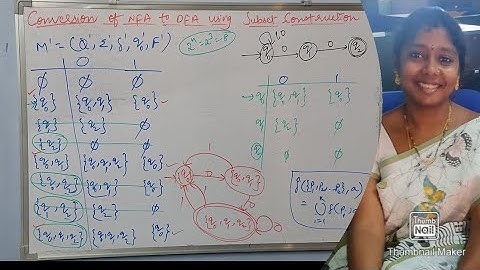 Conversion of NFA to DFA using Subset Construction
M' = (Q', Σ, δ', q₀', F')
2ⁿ = 2³ = 8
1,0
q₀ 0 q₁ 0 q₂
0 1
∅ ∅ ∅
→{q₀} {q₀,q₁} {q₀}
{q₁} {q₂} ∅
{q₂} ∅ ∅
{q₀,q₁} {q₀,q₁,q₂} {q₀}
{q₀,q₂} {q₀,q₁} {q₀}
{q₁,q₂} {q₂} ∅
{q₀,q₁,q₂} {q₀,q₁,q₂} {q₀}
0 1
→q₀ {q₀,q₁} {q₀}
q₁ {q₂} ∅
q₂ ∅ ∅
1
{q₀} 0 {q₀,q₁}
0
{q₀,q₁,q₂} 0
Thumb
Nail
Thumbnail Maker